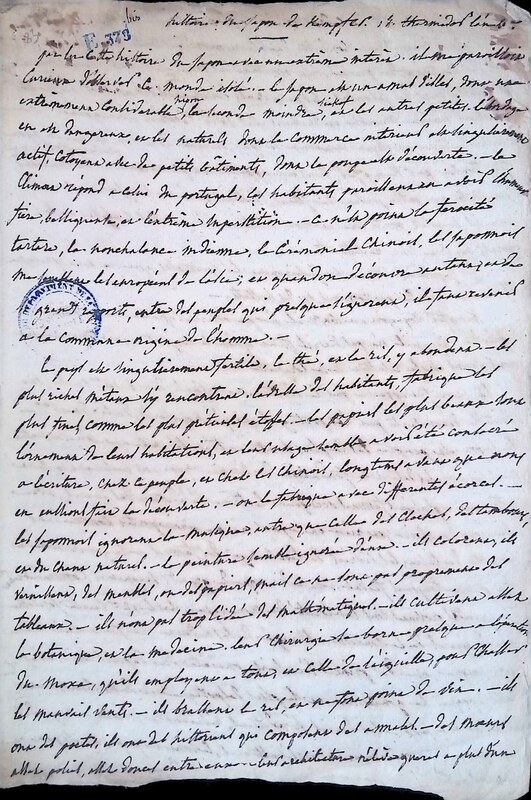 bis
F. 328
histoire du Japon de Kempfer. 12. thermidor l'an 6.
j'ai lu cette histoire du Japon avec un extrême intérêt. il me paroissoit
curieux d'observer ce monde isolé. — le Japon est un amas d'isles, dont une
extrêmement considérable, nipon, la seconde moindre, et les autres petites.
en est dangereux, et les naturels dont le commerce intérieur est singulièrement
actif, cotoyent avec de petits bâtiments, dont la poupe est découverte. — le
climat répond à celui du portugal, les habitants paroissent avoir l'humeur
fière, belliqueuse, et l'extrême superstition. — ce n'est point la férocité
tartare, la nonchalance indienne, le cérémonial chinois, les japonnois
me paroissent les européens de l'asie; et quand on découvre autant et de
grands rapports, entre des peuples qui presque s'ignorent, il faut revenir
à la commune origine de l'homme. —
le pays est singulièrement fertile, le thé, et le ril, y abondent — les
plus riches métaux s'y rencontrent. l'adresse des habitants, fabrique les
plus fines comme les plus précieuses étoffes. — les papiers les plus beaux sont
l'ornement de leurs habitations, et leur usage semble avoir été consacré
à l'écriture, chez ce peuple, et chez les chinois, longtems avant que nous
en eussions fait la découverte. — on le fabrique avec différentes écorces. —
les japonnois ignorent la musique, autre que celle des cloches, des tambours,
et du chant naturel. — la peinture semble ignorée d'eux. — ils colorent, ils
vernissent, des meubles, ou des papiers, mais ce ne sont pas proprement des
tableaux. — ils n'ont pas trop l'idée des mathématiques. — ils cultivent assez
la botanique, et la médecine. leur chirurgie se borne presque à l'opération
du Moxa, qu'ils employent à tout, et celle de l'éguille, pour chasser
les mauvais vents. — ils brassent le ril, et ne font point de vin. — ils
ont des poètes, ils ont des historiens qui composent des annales. — des mœurs
assez polies, assez douces entre eux — leur architecture n'élève guères à plus d'un